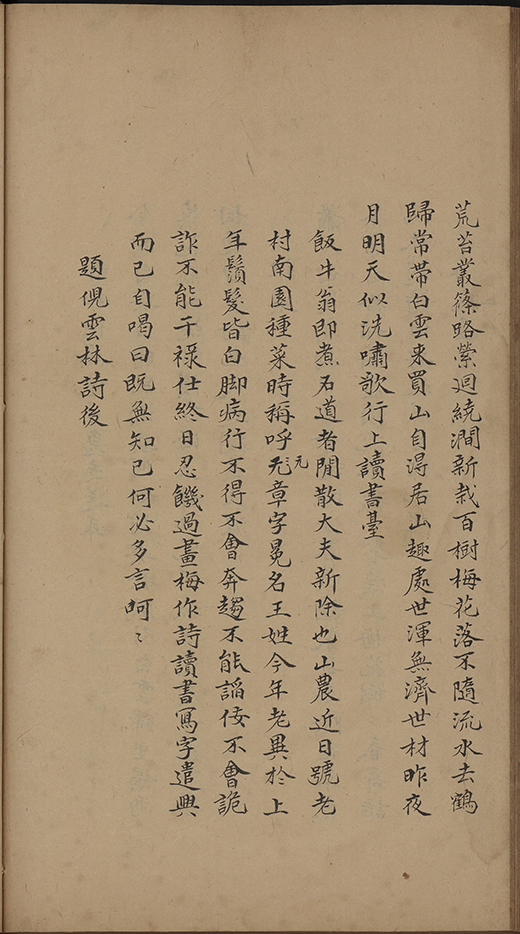 荒苔叢篠路縈迴繞澗新栽百樹梅花落不隨流水去鶴
歸常帶白雲來買山自得居山趣處世渾無濟世材昨夜
月明天似洗嘯歌行上讀書臺
飯牛翁即煮石道者閒散大夫新除也山農近日號老
村南園種菜時稱呼元章字冕名王姓今年老異於上
年鬚髮皆白脚病行不得不會奔趨不能諂佞不會詭
詐不能干祿仕終日忍饑過畫梅作詩讀書寫字遣興
而已自喝曰既無知己何必多言呵〻
題倪雲林詩後